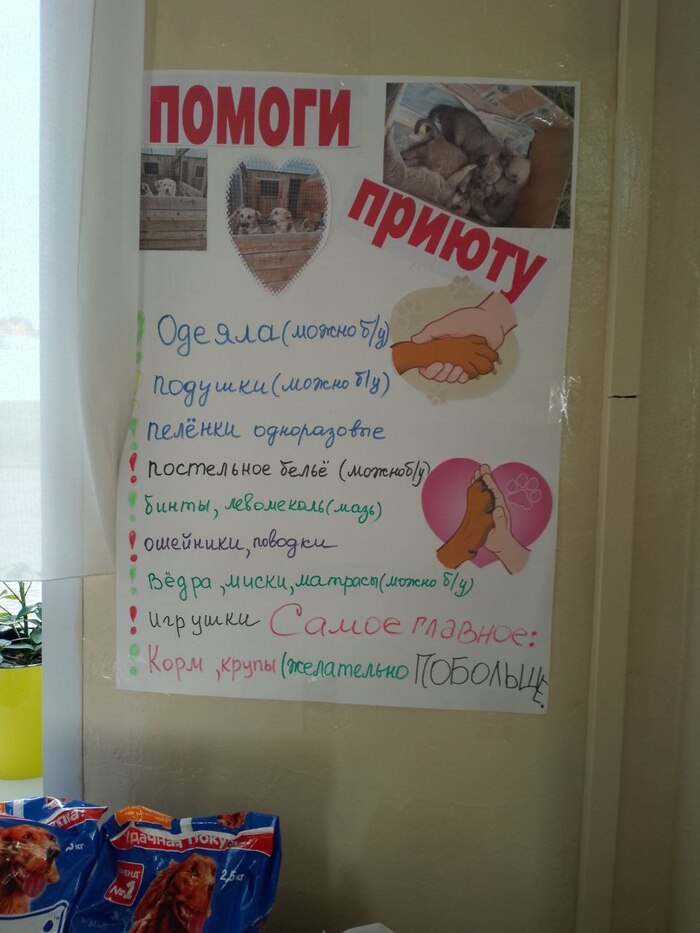 ПОМОГИ
ПРИЮТУ
Одеяла (можно б/у)
подушки (можно б/у)
пелёнки одноразовые
! постельное бельё (можно б/у)
! бинты, левомеколь (мазь)
! ошейники, поводки
! Вёдра, миски, матрасы (можно б/у)
! игрушки Самое главное:
! Корм, крупы (желательно ПОБОЛЬШЕ.
Удачная Покуп
БРЕНД
№1
2,5 кг